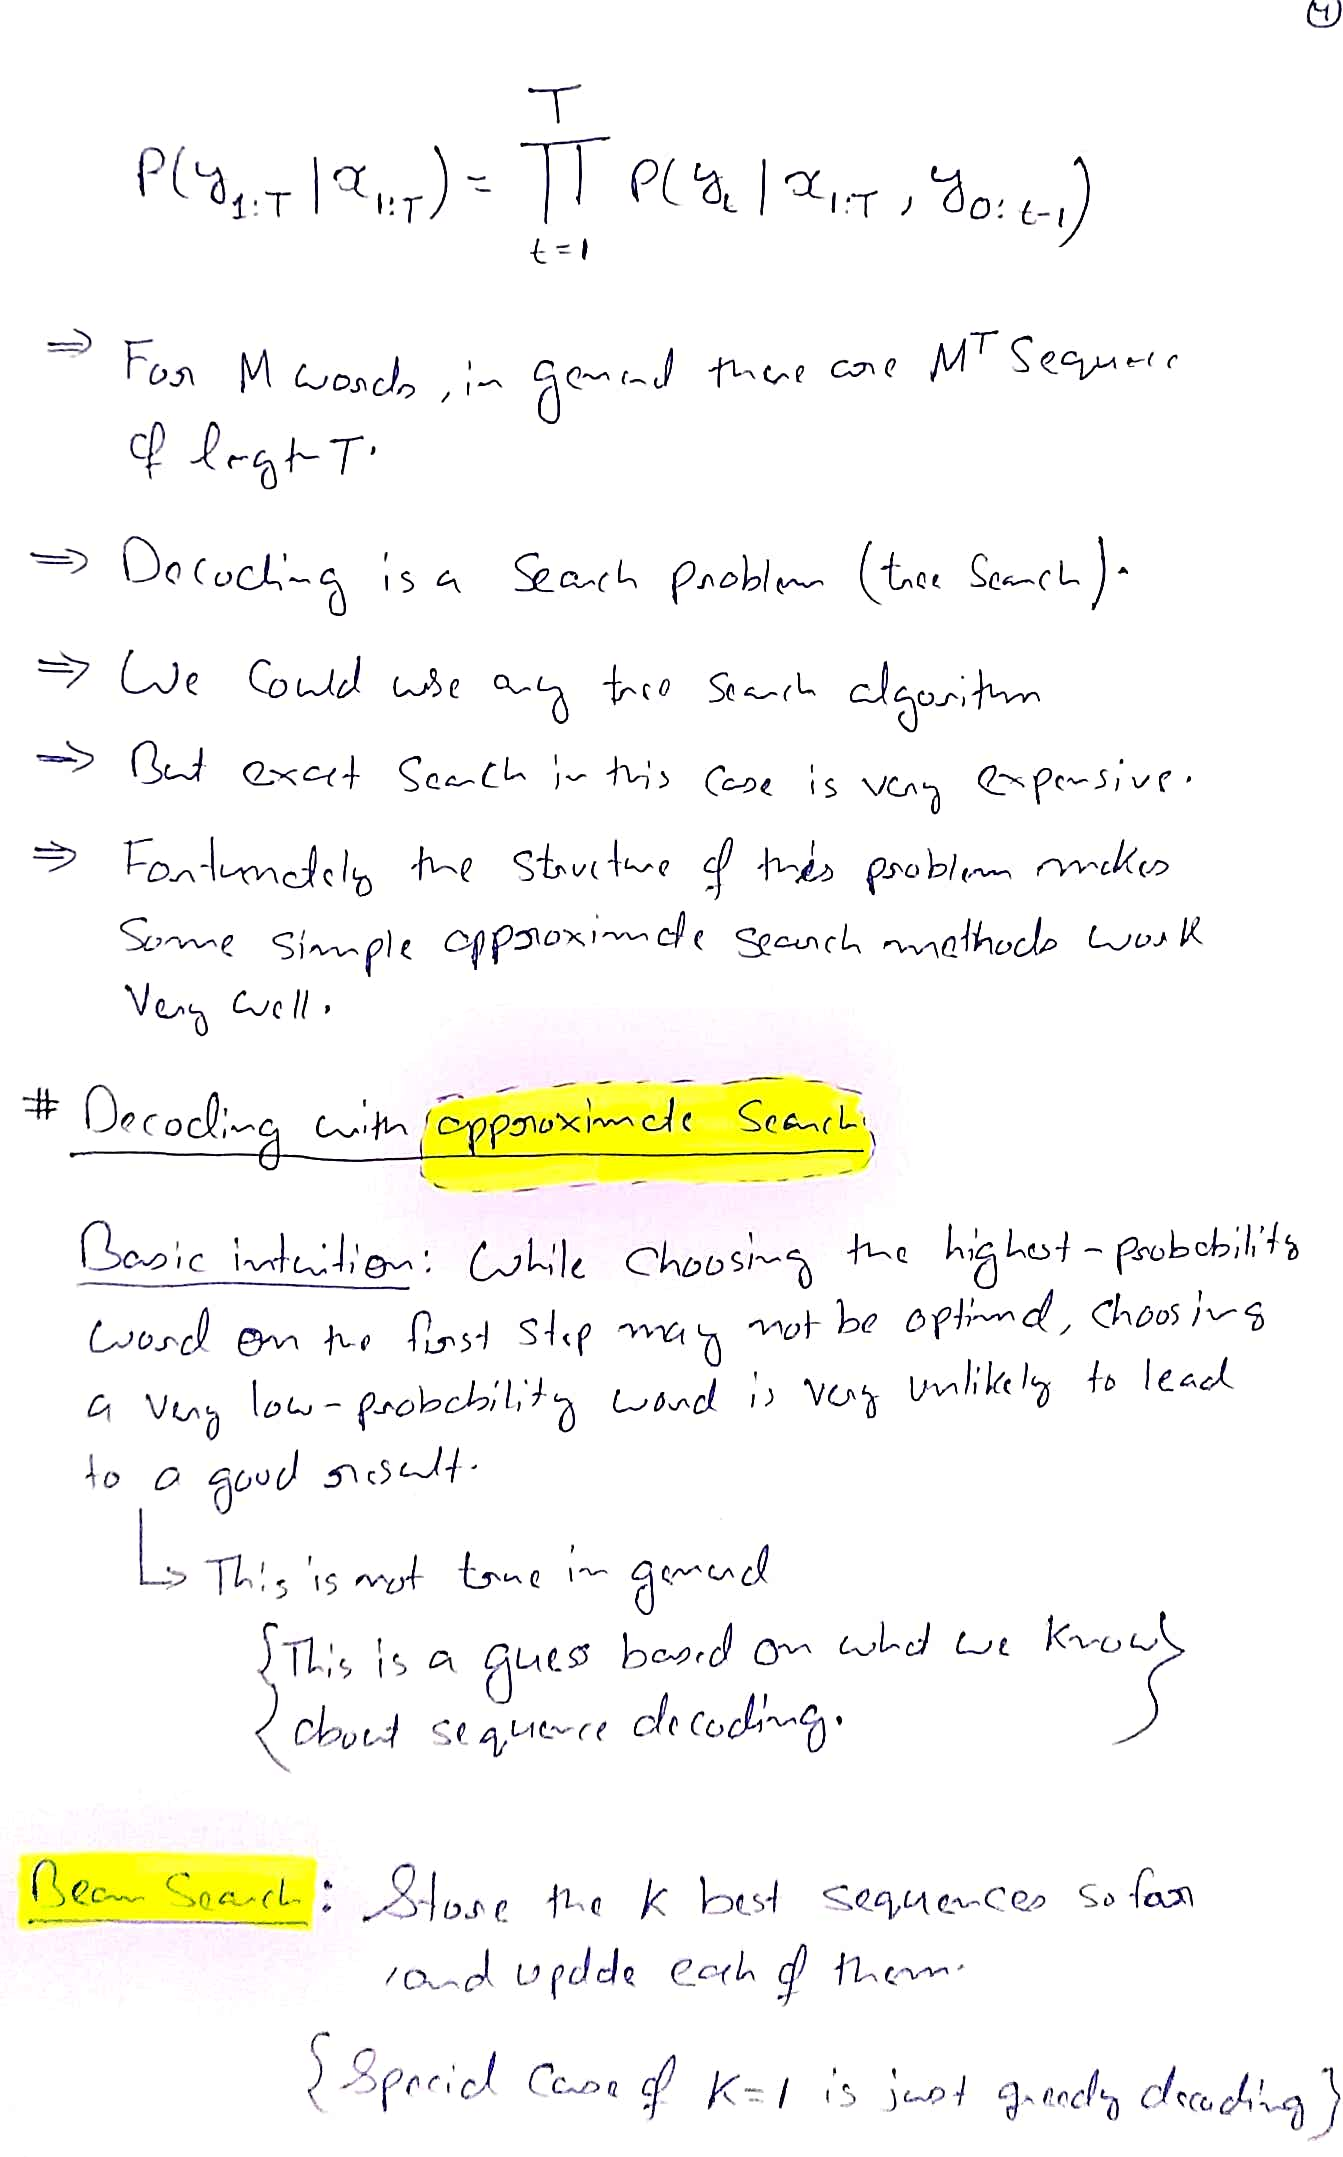 4
P(y_{1:T} | x_{1:T}) = ∏_{t=1}^{T} P(y_t | x_{1:T}, y_{0:t-1})
⇒ For M words, in general there are M^T Sequence
of length T.
⇒ Decoding is a Search problem (tree Search).
⇒ We Could use any tree Search algorithm
⇒ But exact Search in this Case is very expensive.
⇒ Fortunately the structure of this problem makes
Some simple approximate search methods work
Very well.
# Decoding with approximate Search
Basic intuition: While Choosing the highest-probability
word on the first step may not be optimal, choosing
a very low-probability word is very unlikely to lead
to a good result.
↳ This is not true in general
{This is a guess based on what we know
about sequence decoding.}
Beam Search: Store the K best sequences so far
and update each of them.
{Special Case of K=1 is just greedy decoding}